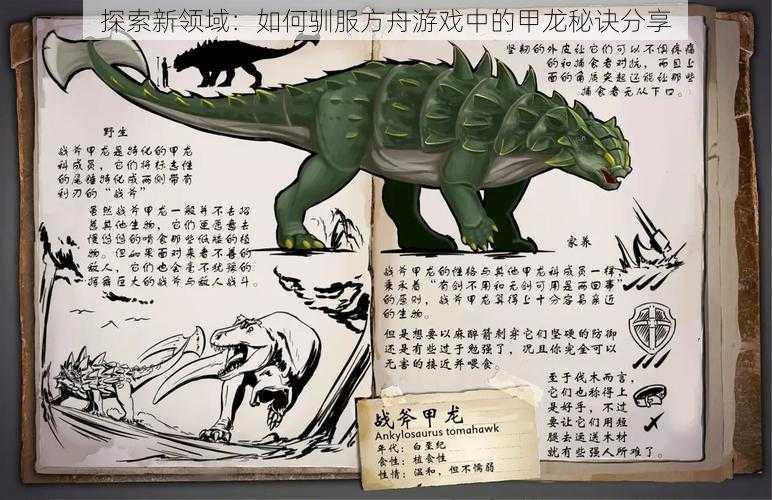 探索新领域：如何驯服方舟游戏中的甲龙秘诀分享
坚韧的外皮让它们可以不惧疼痛
的和捕食者对抗，而且上
面的角质突起还能让那些
捕食者无从下口。
野生
战斧甲龙是特化的甲龙
科成员，它们将标志性
的尾锤特化成两侧带有
利刃的“战斧”
虽然战斧甲龙一般并不去招
惹其他生物，它们更愿意去
慢悠悠的啃食那些低矮的植
物。但如果面对来者不善的
敌人，它们也会毫不犹豫的
挥着巨大的战斧与敌人战斗。
家养
战斧甲龙的性格与其他甲龙科成员一样，
秉承着“有剑不用和无剑可用是两回事”
的原则，战斧甲龙算得上十分容易亲近
的生物。
但是想要以麻醉箭刺穿它们坚硬的防御
还是有些过于勉强了，况且你完全可以
无害的接近并喂食。
至于伐木而言，
它们也称得上
是好手，不过
要让它们用短
腿去运送木材
就有些强人所难了。
战斧甲龙
Ankylosaurus tomahawk
年代：白垩纪
食性：植食性
性情：温和，但不懦弱